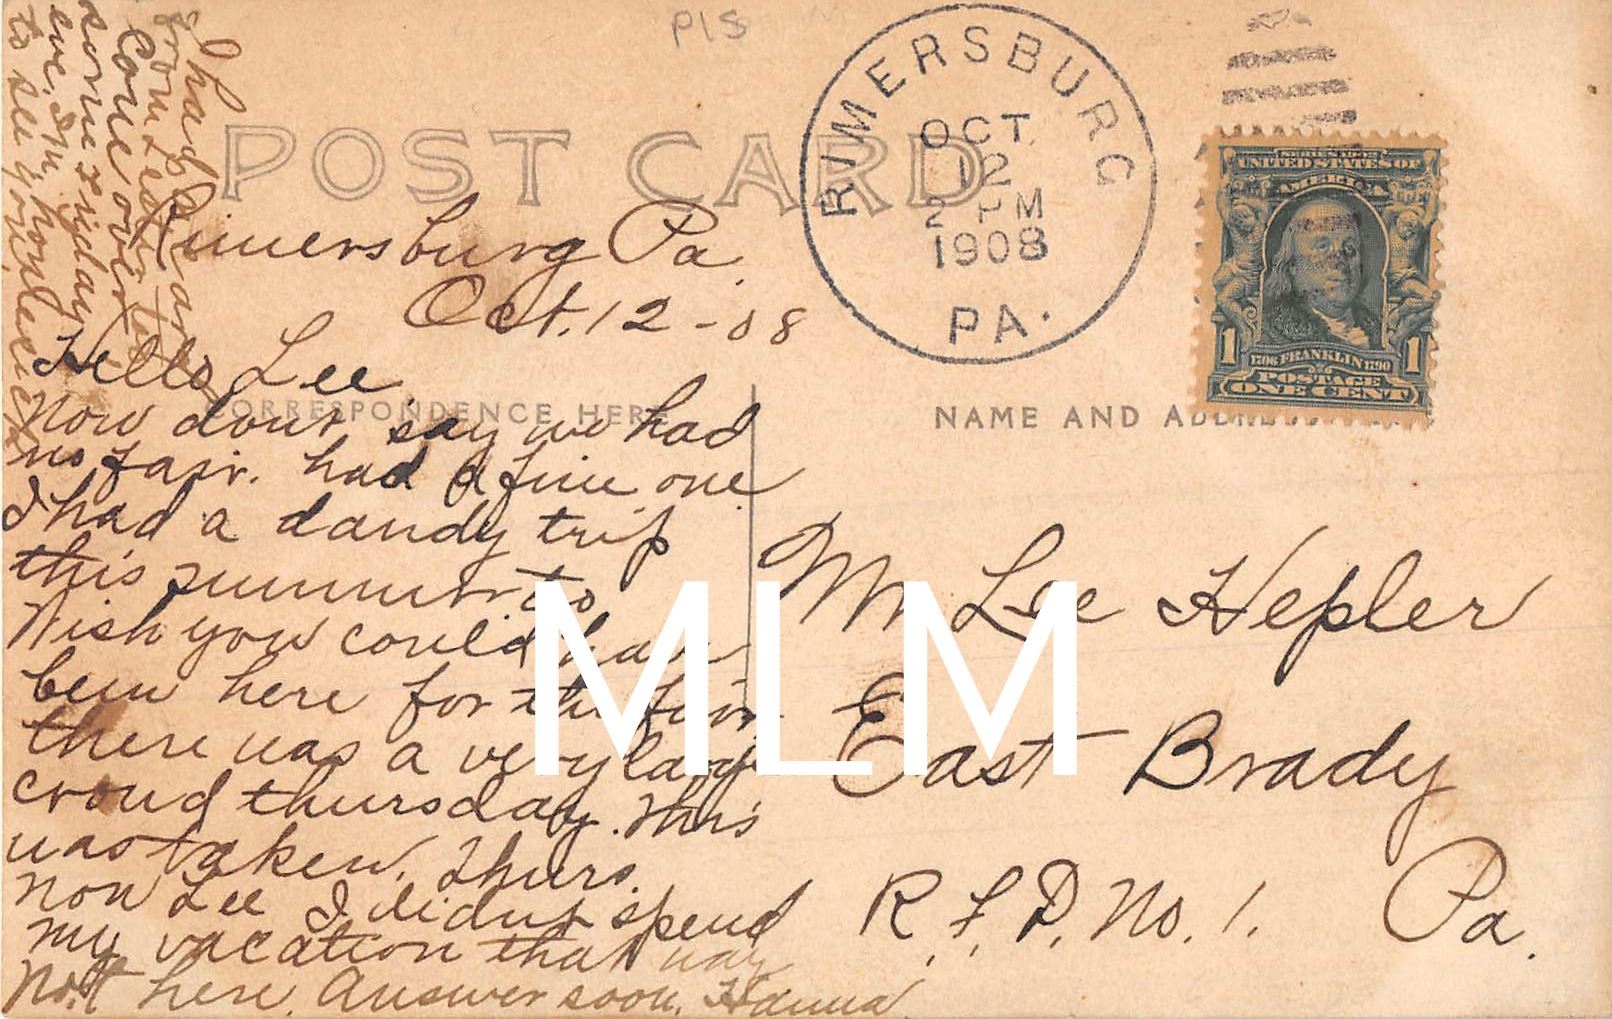 P/S
POST CARD
RIMERSBURG
OCT.
12
2 PM
1908
PA.
SERIES 1902
UNITED STATES OF
AMERICA
1706 FRANKLIN 1790
1 1
POSTAGE
ONE CENT
CORRESPONDENCE HERE
NAME AND ADDRESS
Rimersburg Pa.
Oct. 12 - 08
Hello Lee
Now don't say we had
no fair. had a fine one
I had a dandy trip
this summer to
Wish you could have
been here for the fair
there was a very large
croud thursday. This
was taken. Thurs.
now Lee I didn't spend
my vacation that way
Not here. Answer soon. Hanna
I had a car
from Lester to
Come over
some Friday
eve. I'm hoping
to see you
Mr Lee Hepler
East Brady
R. F. D. No. 1. Pa.
MLM